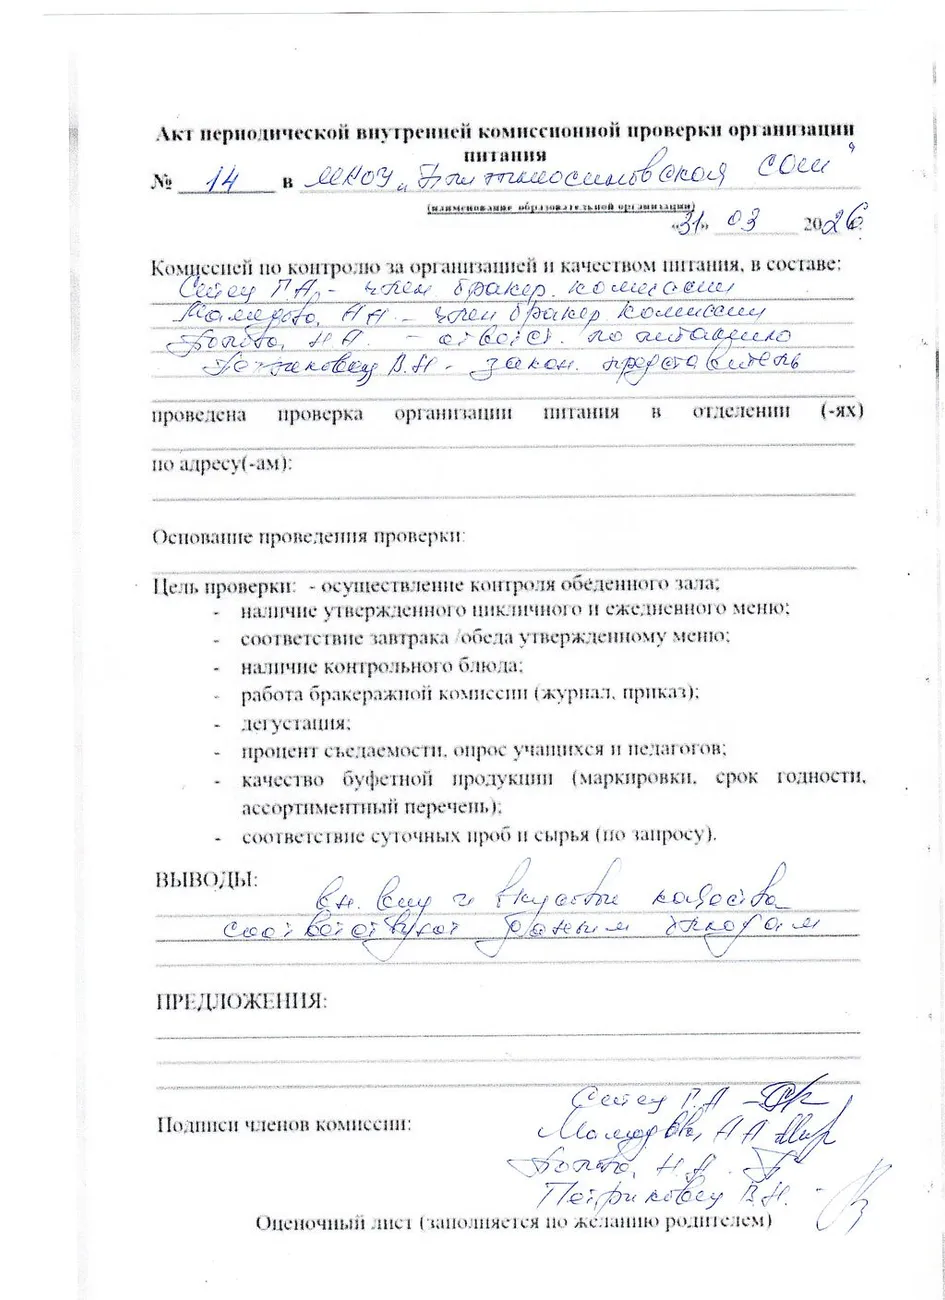 Акт периодической внутренней комиссионной проверки организации
питания
№ 14 в МКОУ СОШ"
(наименование образовательной организации)
«31» 03 2026
Комиссией по контролю за организацией и качеством питания, в составе:
Г.А. - член бракер. комиссии
Мамедова, А А - член бракер комиссии
Н А. - ответст. по питанию
Петриковец В.Н - закон. представитель
проведена проверка организации питания в отделении (-ях)
по адресу(-ам):
Основание проведения проверки:
Цель проверки: - осуществление контроля обеденного зала;
- наличие утвержденного цикличного и ежедневного меню;
- соответствие завтрака /обеда утвержденному меню;
- наличие контрольного блюда;
- работа бракеражной комиссии (журнал, приказ);
- дегустация;
- процент съедаемости, опрос учащихся и педагогов;
- качество буфетной продукции (маркировки, срок годности,
ассортиментный перечень);
- соответствие суточных проб и сырья (по запросу).
ВЫВОДЫ:
вн. виду и вкусовые качества
соответствуют данным блюдам
ПРЕДЛОЖЕНИЯ:
Г.А -
Подписи членов комиссии:
Мамедова, А А
Н.А.
Петриковец В.Н. -
Оценочный лист (заполняется по желанию родителем)